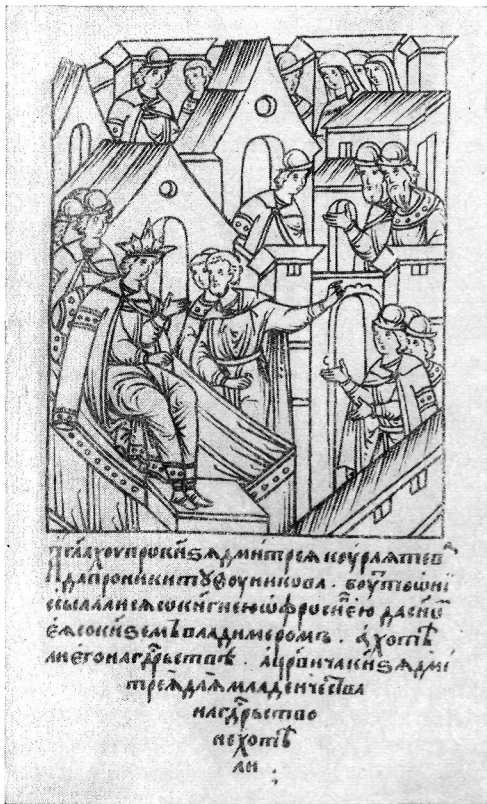 И гл҃ахоу про кн҃ѕѧ дмитреѧ коурлѧтева
да про никитꙋ ѳоуникова . боуⷣто ѡни
ссылалисѧ со кнѧгинею ѡфросинею да с сн҃оⷨ
еѧ со кн҃ѕемъ владимеромъ . а хотѣ
ли его на гдⷭ҇рьствѣ . а цр҃вича кн҃ѕѧ дми
треѧ длѧ младеничества
на гдⷭ҇рьство
не хотѣ
ли .